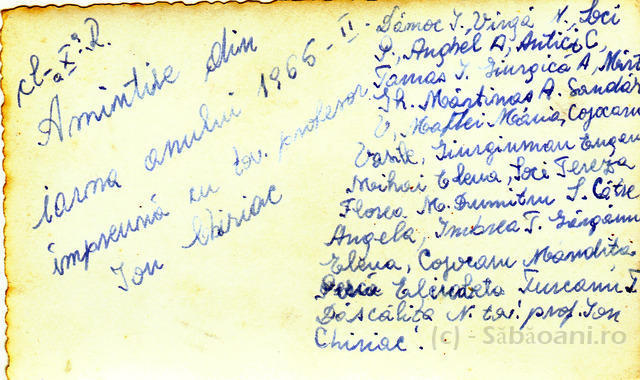 cl-a Xª R.
Amintire din
iarna anului 1965-II.
împreună cu tov. profesor
Ion Chiriac
Dămoc I., Vîrgă N., Soci
P., Anghel A, Antici C,
Tamas I. Giurgică A, Mărt
Gh. Mărtinas A. Sandar
V, Maftei Maria, Cojocaru
Vasile, Giurginman Eugen
Mihai Elena, Soci Tereza
Florea M. Dumitru S.
Angela, Imbrea T.
Elena, Cojocaru Măndița
Elizabeta Turcanu T.
Dăscălița N. tov. prof. Ion
Chiriac.
(c) - Săbăoani.ro